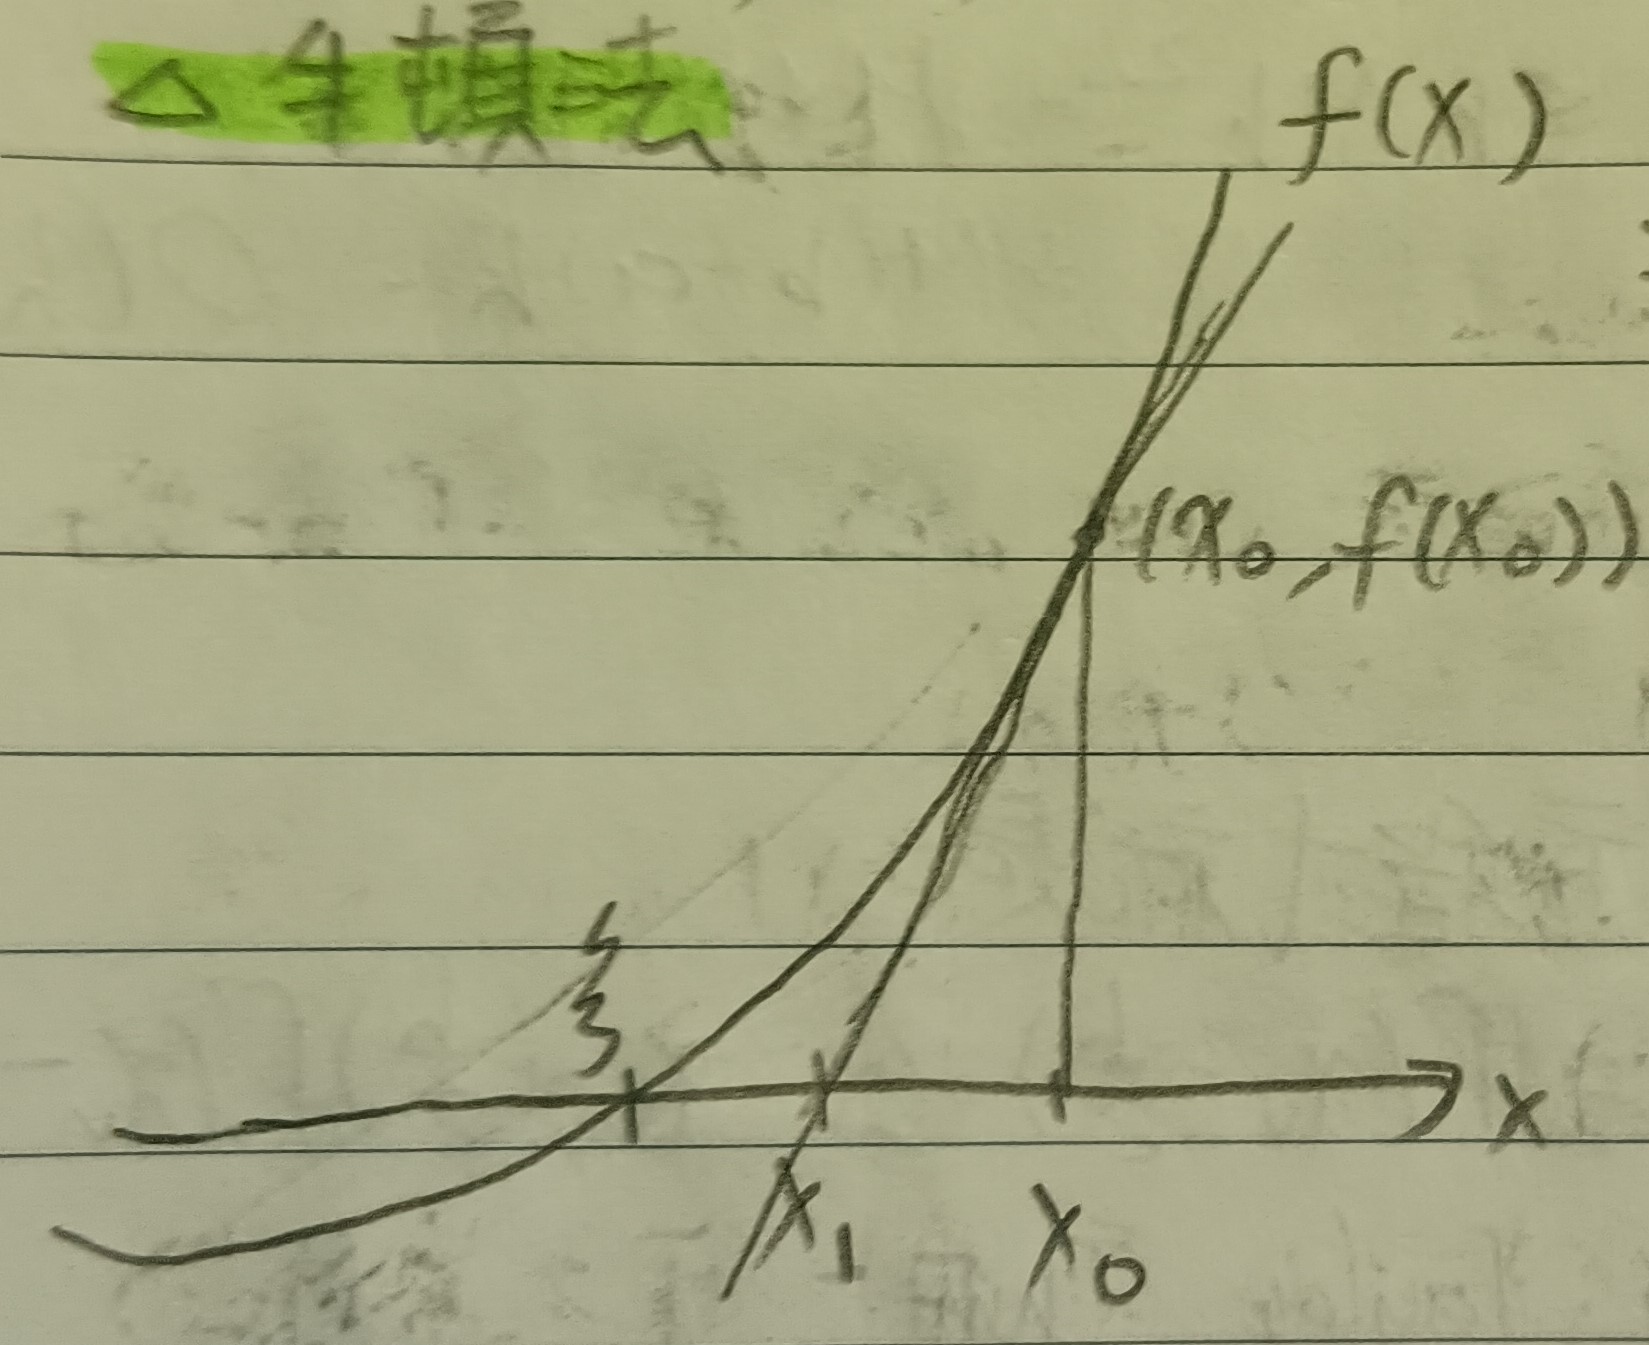 △牛頓法
f(x)
(x₀, f(x₀))
ξ
x
x₁
x₀